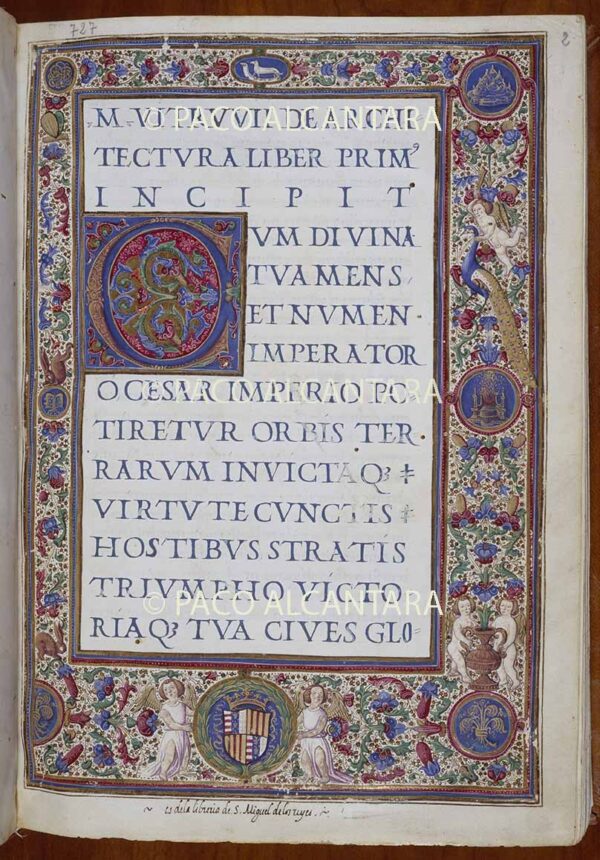 727
2
M · VITRVVII DE ARCHI
TECTVRA LIBER PRIMꝰ
INCIPIT
CVM DIVINA
TVA MENS
ET NVMEN
IMPERATOR
O CESAR IMPERIO PO
TIRETVR ORBIS TER
RARVM INVICTAQꝫ
VIRTVTE CVNCTIS
HOSTIBVS STRATIS
TRIVMPHO VICTO
RIAQꝫ TVA CIVES GLO=
~ es dela libreria de S. Miguel delos reyes. ~
© PACO ALCANTARA
© PACO ALCANTARA
© PACO ALCANTARA